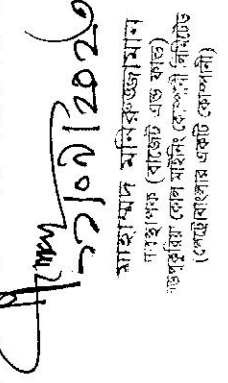 ২২/০৭/২০২৩
মোহাম্মদ মনিরুজ্জামান
ব্যবস্থাপক (বাজেট এন্ড ফান্ড)
বড়পুকুরিয়া কোল মাইনিং কোম্পানী লিমিটেড
(পেট্রোবাংলার একটি কোম্পানী)